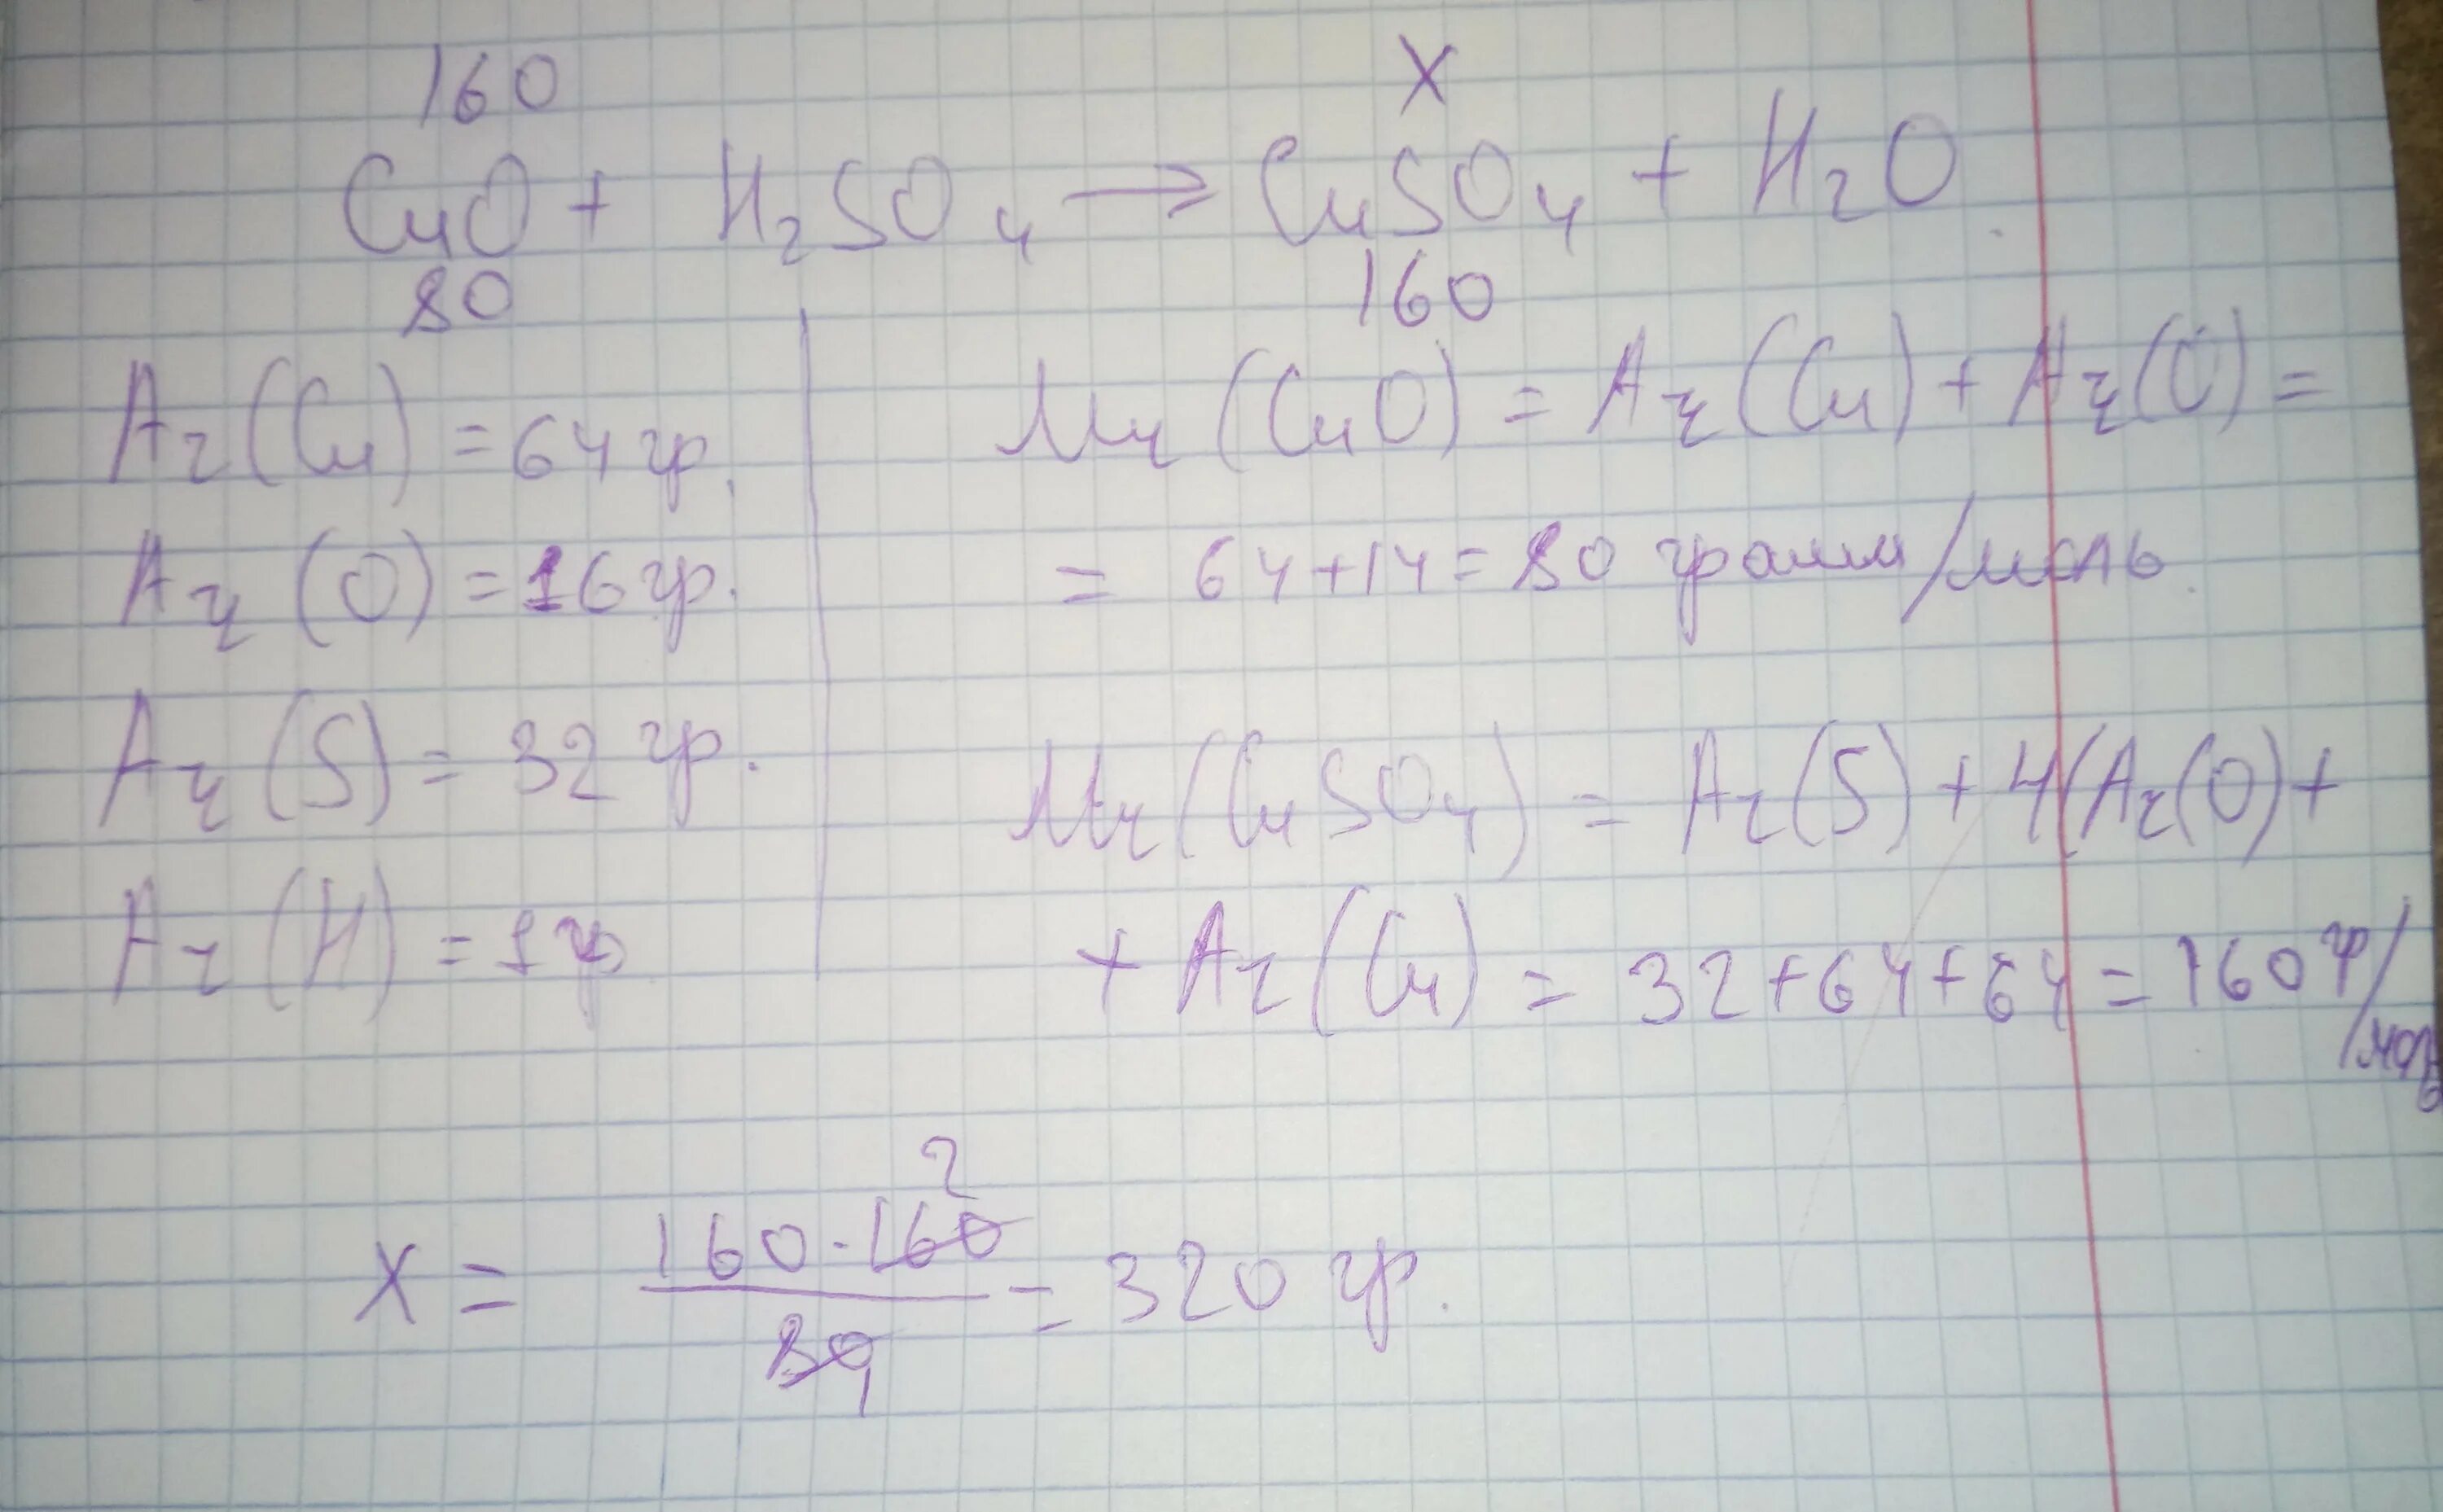 160 X
CuO + H2SO4 → CuSO4 + H2O
80 160
Ar(Cu) = 64 гр.
Ar(O) = 16 гр.
Ar(S) = 32 гр.
Ar(H) = 1 гр
Mr(CuO) = Ar(Cu) + Ar(O) =
= 64+14 = 80 грамм/моль.
Mr(CuSO4) = Ar(S) + 4(Ar(O) +
+ Ar(Cu) = 32+64+64 = 160 гр/моль
2
X = 160·160 / 80 = 320 гр.
1